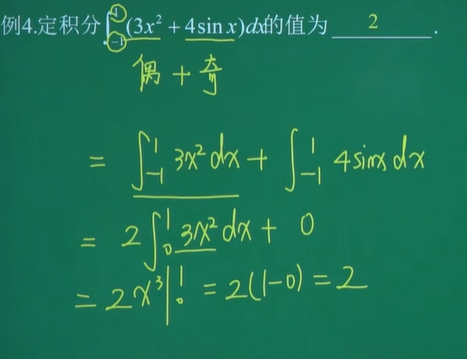 例4.定积分∫₋₁¹(3x²+4sinx)dx的值为 2 .
偶+奇
= ∫₋₁¹ 3x²dx + ∫₋₁¹ 4sinx dx
= 2∫₀¹ 3x²dx + 0
= 2x³|₀¹ = 2(1-0) = 2